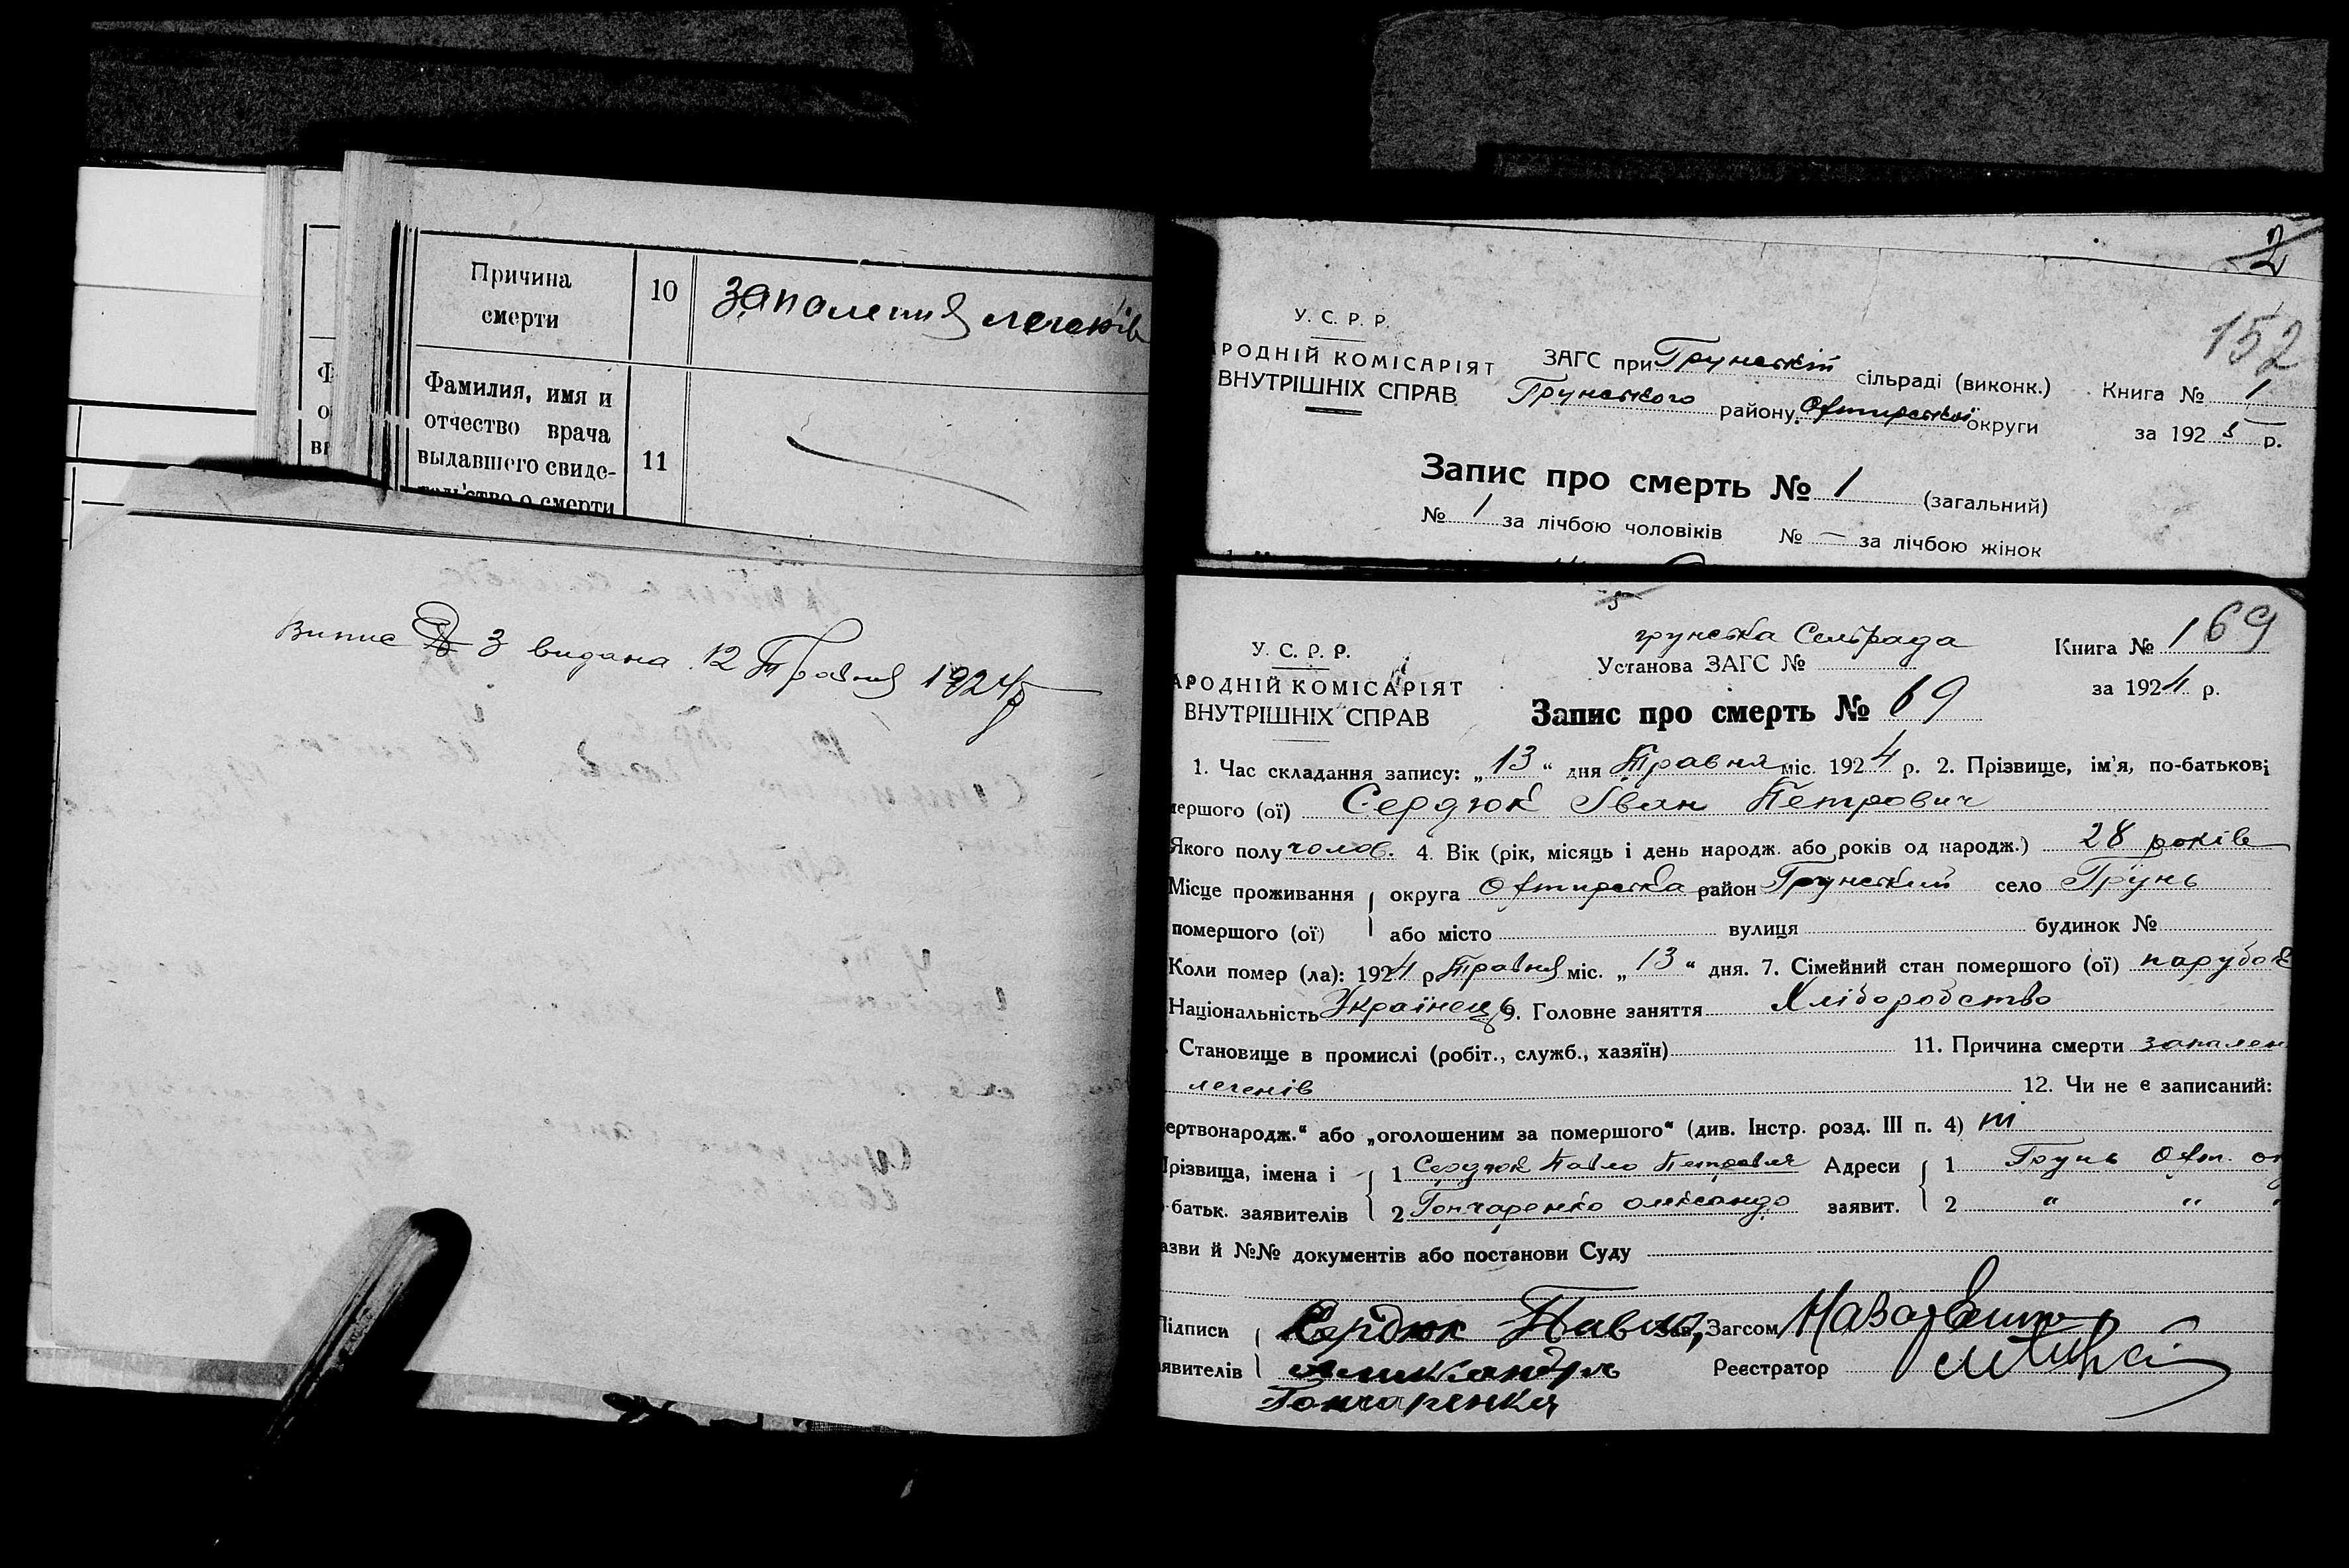 Причина
смерти
10
запаления легенів
Фамилия, имя и
отчество врача
выдавшего свиде-
тельство о смерти
11
Випис № 3 видана 12 Травня 1924 р
2
152
У. С. Р. Р.
РОДНІЙ КОМІСАРІЯТ
ВНУТРІШНІХ СПРАВ
ЗАГС при Грунській сільраді (виконк.)
Грунського району Охтирської округи
Книга № 1
за 1925 р.
Запис про смерть № 1 (загальний)
№ 1 за лічбою чоловіків № — за лічбою жінок
У. С. Р. Р.
АРОДНІЙ КОМІСАРІЯТ
ВНУТРІШНІХ СПРАВ
грунська Сельрада
Установа ЗАГС №
Книга № 1 69
за 1924 р.
Запис про смерть № 69
1. Час складання запису: „13“ дня Травня міс. 1924 р. 2. Прізвище, ім'я, по-батькові
мершого (ої) Сердюк Іван Петрович
Якого полу чолов. 4. Вік (рік, місяць і день народж. або років од народж.) 28 років
Місце проживання округа Охтирська район Грунський село Грунь
помершого (ої) або місто вулиця будинок №
Коли помер (ла): 1924 р. Травня міс. „13“ дня. 7. Сімейний стан помершого (ої) парубок
Національність Українець 9. Головне заняття Хліборобство
. Становище в промислі (робіт., служб., хазяїн) 11. Причина смерти запален
легенів 12. Чи не є записаний:
ертвонародж.“ або „оголошеним за помершого“ (див. Інстр. розд. III п. 4)
різвища, імена і 1 Сердюк Павло Петрович Адреси 1 Грунь Охт. ок
-батьк. заявителів 2 Гончаренко Олександр заявит. 2 “ “ “
азви й №№ документів або постанови Суду
Підписи Сердюк Павло, Зав. Загсом
явителів Реєстратор
Гончаренко